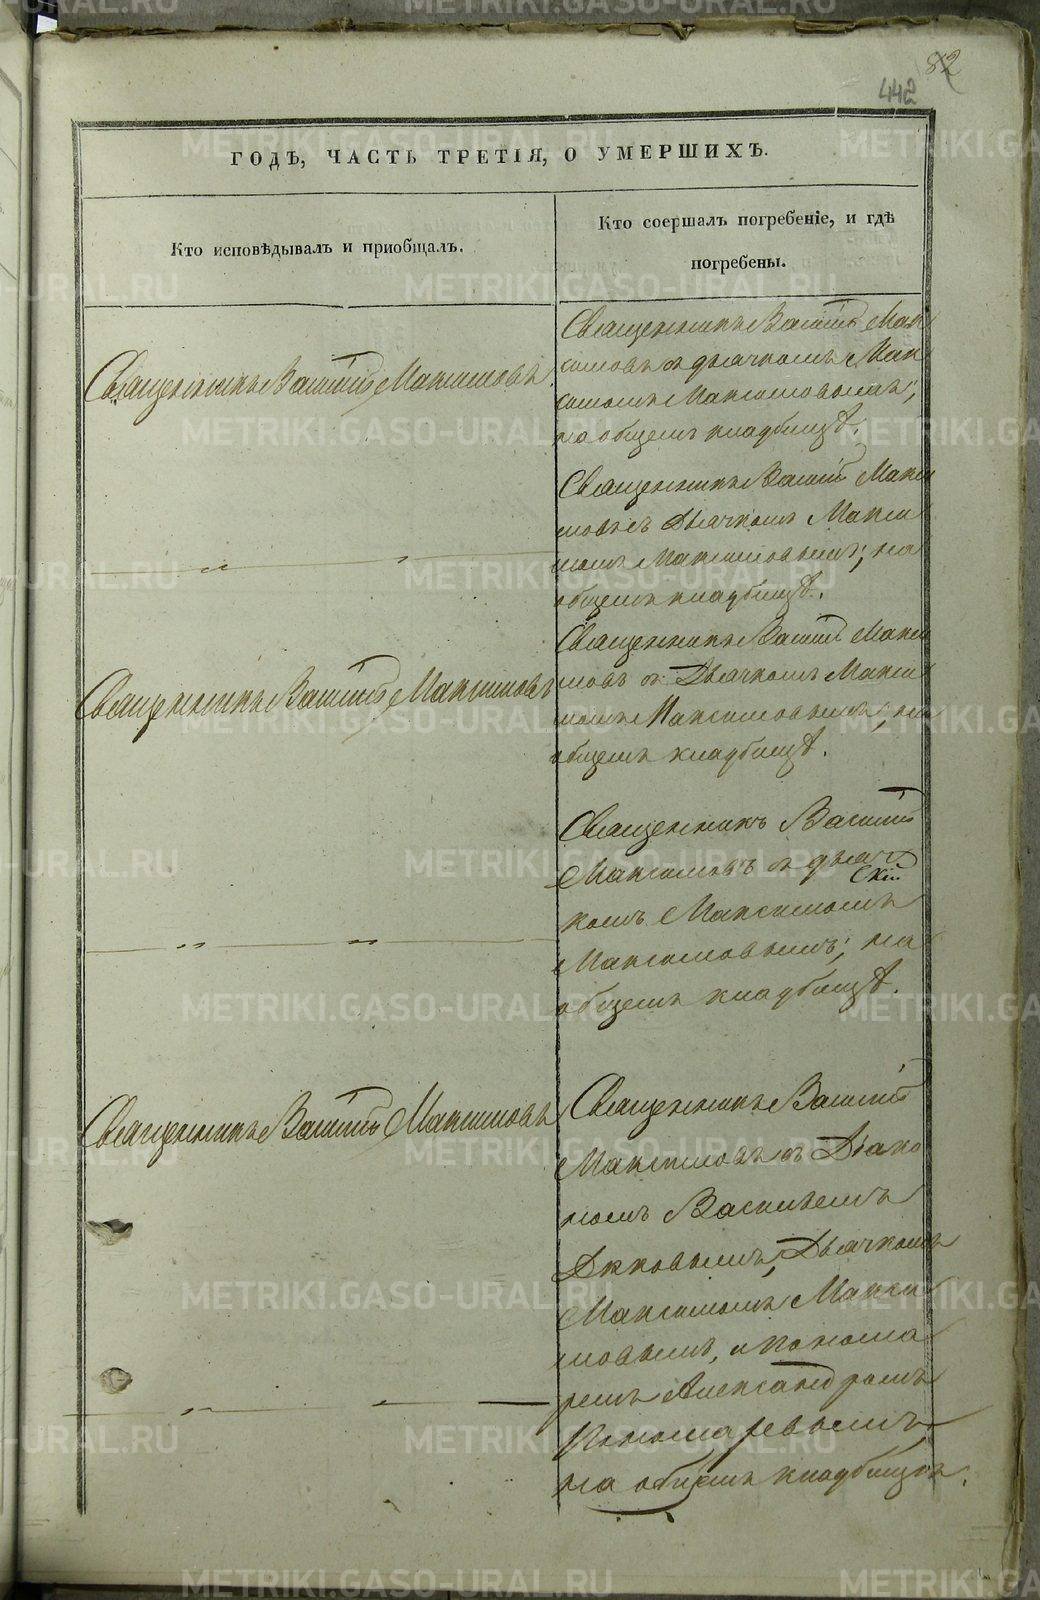 82
442
ГОДЪ, ЧАСТЬ ТРЕТІЯ, О УМЕРШИХЪ.
Кто исповѣдывалъ и приобщалъ.
Кто соершалъ погребеніе, и гдѣ
погребены.
Священникъ Василій Максимовъ.
Священникъ Василій Мак
симовъ съ дьячкомъ Мак
симомъ Максимовымъ;
на общемъ кладбищѣ.
Священникъ Василій Макси
мовъ съ Дьячкомъ Макси
момъ Максимовымъ; на
общемъ кладбищѣ.
Священникъ Василій Максимовъ
Священникъ Василій Макси
мовъ съ Дьячкомъ Макси
момъ Максимовымъ; на
общемъ кладбищѣ.
Священникъ Василій
Максимовъ съ дьяч
комъ Максимомъ
Максимовымъ; на
общемъ кладбищѣ.
Священникъ Василій Максимовъ
Священникъ Василій
Максимовъ съ Діако
номъ Василіемъ
Дьячкомъ
Максимомъ Макси
мовымъ, и Понома
ремъ Александромъ
Пономаревымъ
на общемъ кладбищѣ.
METRIKI.GASO-URAL.RU